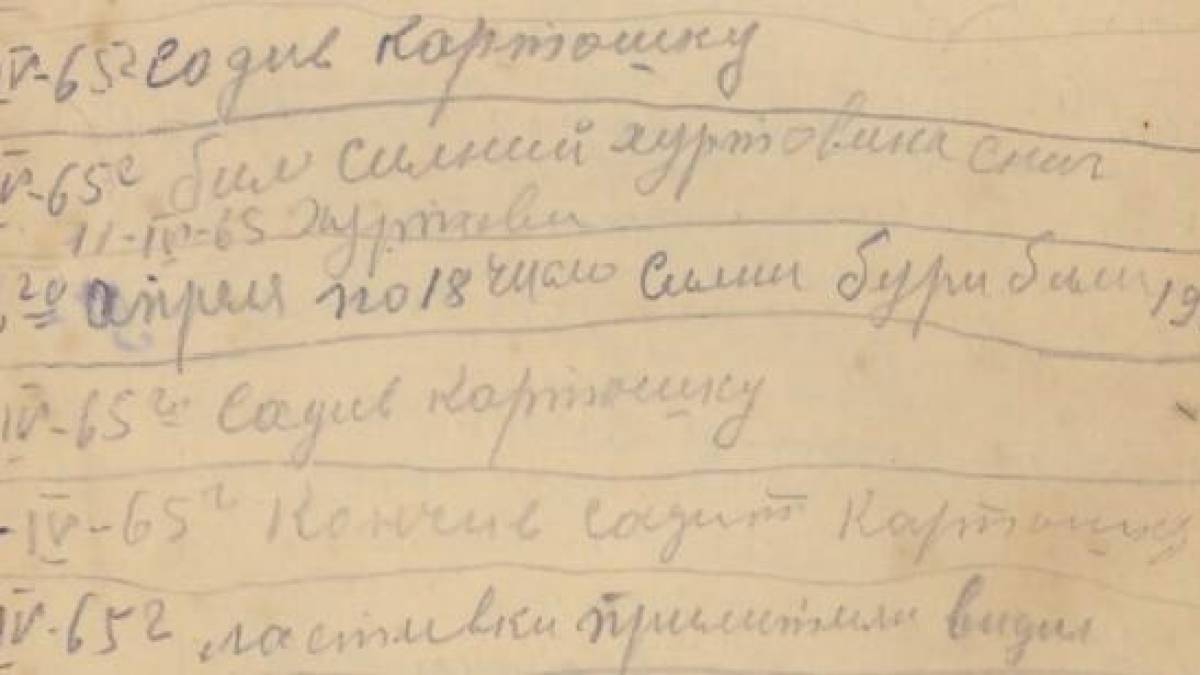 IV-65г Садив Картошку
IV-65г бил Силний хуртовина Сниг
11-IV-65 хуртови
20 апреля по 18 число Силни бури били 19
IV-65г Садив Картошку
-IV-65г Кончив Садит Картошку
IV-65г ластивки прилитили видил